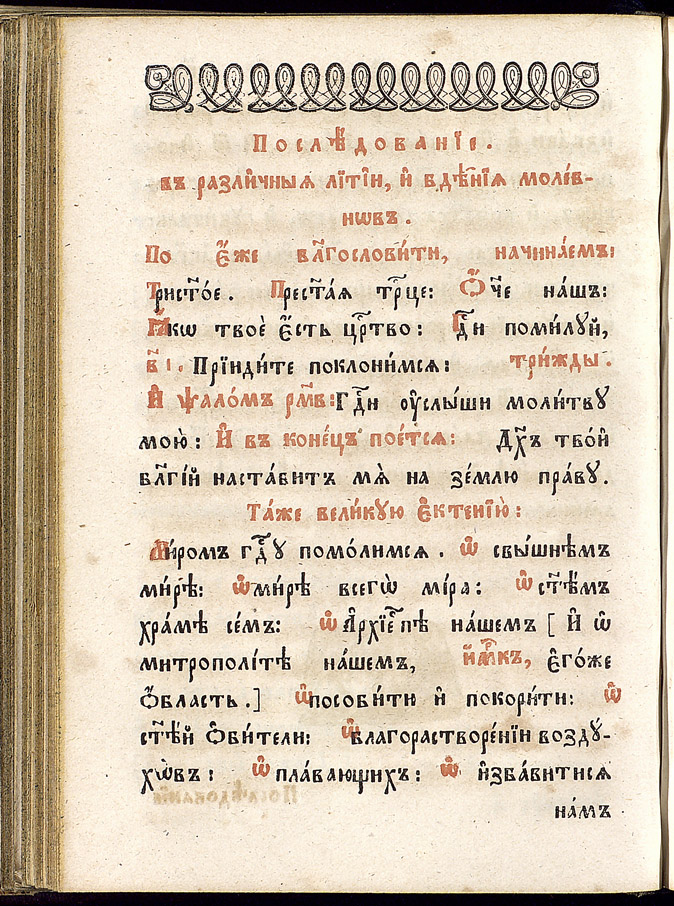 Послѣ́дованїе.
въ разли́чныѧ лїті́и, и҆ бдѣ́нїѧ моле́б-
нωвъ.
По є҆́же блг҃ослови́ти, начина́емъ:
Трист҃о́е. Прест҃а́ѧ трⷪ҇це: Ѻ҆́ч҃е на́шъ:
Ꙗ҆́кѡ твоѐ є҆́сть црⷭ҇тво: Гдⷭ҇и поми́лꙋй,
в҃і. Прїиди́те поклони́мсѧ: три́жды.
И҆ ѱало́мъ рм҃в: Гдⷭ҇и ᲂу҆слы́ши моли́твꙋ
мою̀: И҆ въ коне́цъ пое́тсѧ: Дх҃ъ тво́й
бл҃гі́й наста́витъ мѧ̀ на зе́млю пра́вꙋ.
Та́же вели́кꙋю є҆ктенїю̀:
Ми́ромъ гдⷭ҇ꙋ помо́лимсѧ. Ѡ҆ свы́шнѣмъ
ми́рѣ: Ѡ҆ ми́рѣ всегѡ̀ мі́ра: Ѡ҆ ст҃ѣ́мъ
хра́мѣ се́мъ: Ѡ҆ А҆рхїе҆пⷭ҇пѣ на́шемъ [ И҆ ѡ҆
митрополі́тѣ на́шемъ, и҆́мⷬ҇къ, є҆гѡ́же
ѻ҆́бласть.] Ѡ҆ пособи́ти и҆ покори́ти: Ѡ҆
ст҃ѣ́й ѻ҆би́тели: Ѡ҆ благорастворе́нїи воздꙋ́-
хѡвъ: Ѡ҆ пла́вающихъ: Ѡ҆ и҆зба́витисѧ
на́мъ